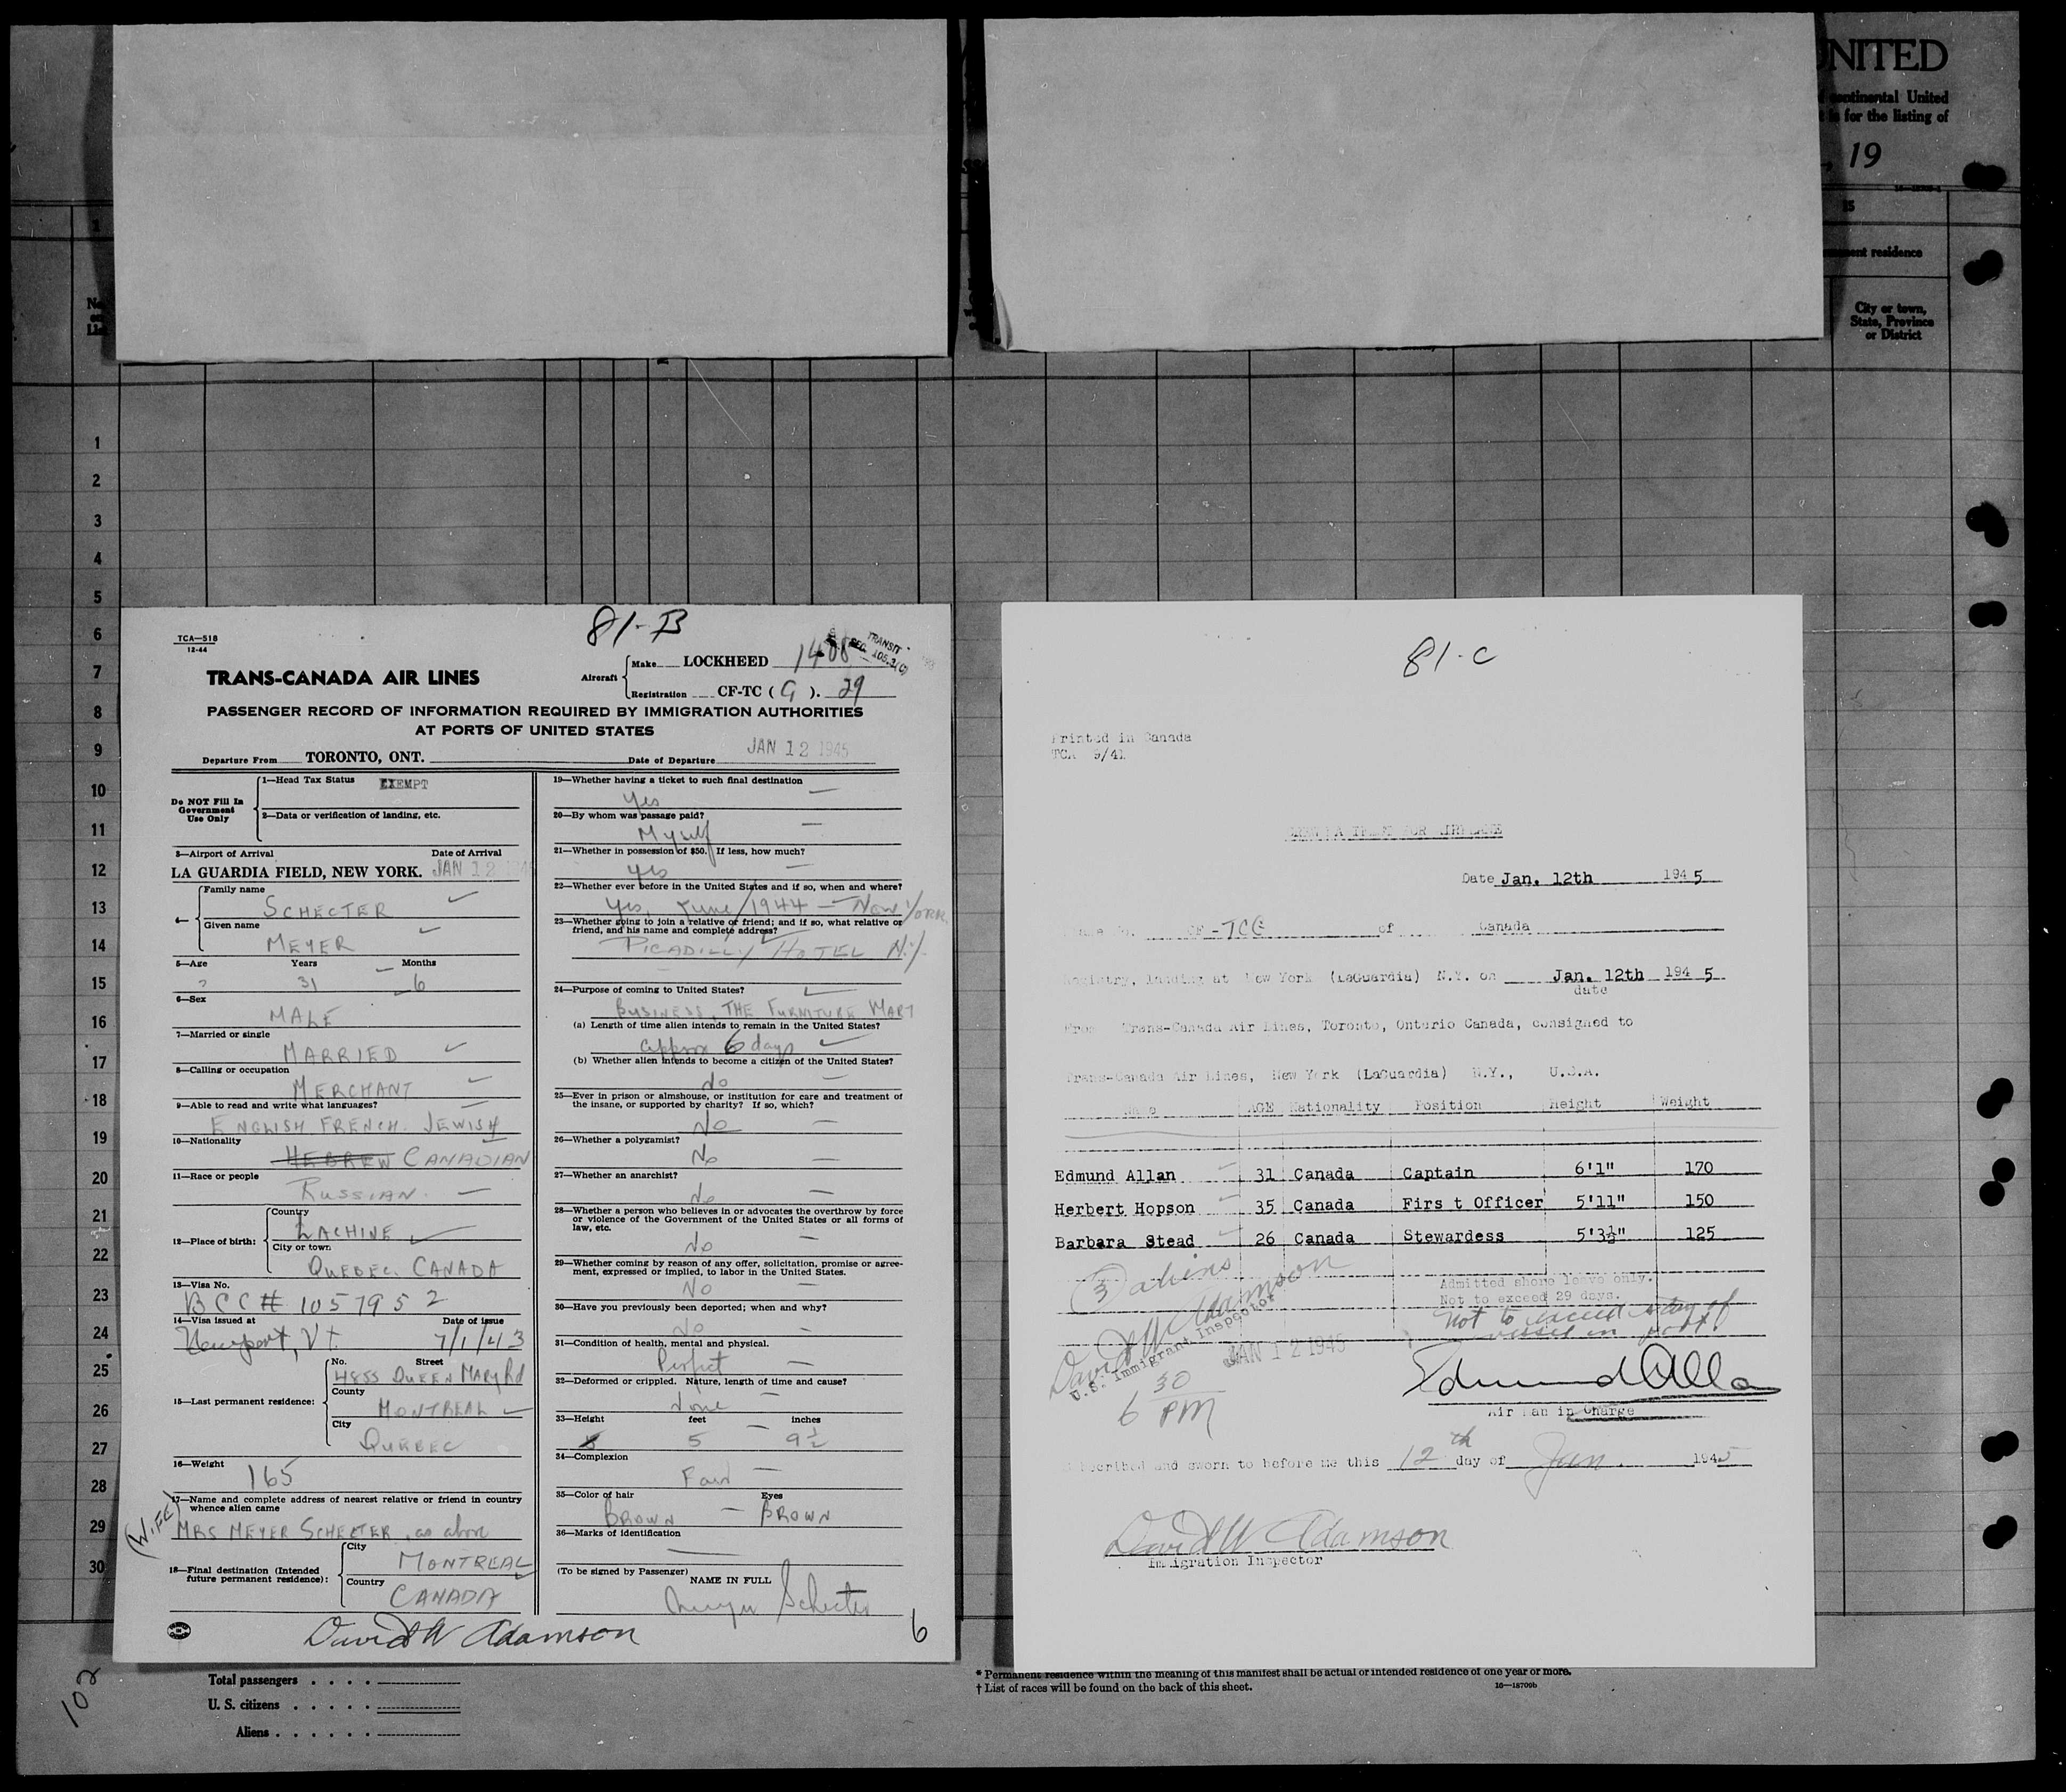 UNITED
continental United
is for the listing of
, 19
15
permanent residence
City or town,
State, Province
or District
1
2
3
4
5
6
7
8
9
10
11
12
13
14
15
16
17
18
19
20
21
22
23
24
25
26
27
28
29
30
81-B
TCA—518
12-44
TRANS-CANADA AIR LINES
Aircraft Make LOCKHEED 1408
Registration CF-TC ( G ). 29
TRANSIT
SEC. 105.3(C)
PASSENGER RECORD OF INFORMATION REQUIRED BY IMMIGRATION AUTHORITIES
AT PORTS OF UNITED STATES
Departure From TORONTO, ONT. Date of Departure JAN 12 1945
Do NOT Fill In
Government
Use Only
1—Head Tax Status EXEMPT
2—Data or verification of landing, etc.
3—Airport of Arrival Date of Arrival
LA GUARDIA FIELD, NEW YORK. JAN 12 45
4—
Family name
SCHECTER
Given name
MEYER
5—Age Years Months
31 6
6—Sex
MALE
7—Married or single
MARRIED
8—Calling or occupation
MERCHANT
9—Able to read and write what languages?
ENGLISH FRENCH. JEWISH
10—Nationality
HEBREW CANADIAN
11—Race or people
RUSSIAN.
12—Place of birth:
Country
LACHINE
City or town
QUEBEC. CANADA
13—Visa No.
BCC# 1057952
14—Visa issued at Date of issue
Newport, Vt. 7/1/43
15—Last permanent residence:
No. Street
4855 QUEEN MARY Rd
County
MONTREAL
City
QUEBEC
16—Weight
165
17—Name and complete address of nearest relative or friend in country
whence alien came
(WIFE)
MRS MEYER SCHECTER, as above
18—Final destination (Intended
future permanent residence):
City
MONTREAL
Country
CANADA
David W Adamson
19—Whether having a ticket to such final destination
Yes
20—By whom was passage paid?
Myself
21—Whether in possession of $50. If less, how much?
Yes
22—Whether ever before in the United States and if so, when and where?
Yes, June/1944 — New York
23—Whether going to join a relative or friend; and if so, what relative or
friend, and his name and complete address?
PICADILLY HOTEL N.Y.
24—Purpose of coming to United States?
BUSINESS, THE FURNITURE MART
(a) Length of time alien intends to remain in the United States?
approx 6 days
(b) Whether alien intends to become a citizen of the United States?
No
25—Ever in prison or almshouse, or institution for care and treatment of
the insane, or supported by charity? If so, which?
No
26—Whether a polygamist?
No
27—Whether an anarchist?
No
28—Whether a person who believes in or advocates the overthrow by force
or violence of the Government of the United States or all forms of
law, etc.
No
29—Whether coming by reason of any offer, solicitation, promise or agree-
ment, expressed or implied, to labor in the United States.
No
30—Have you previously been deported; when and why?
No
31—Condition of health, mental and physical.
Perfect
32—Deformed or crippled. Nature, length of time and cause?
None
33—Height feet inches
5 9½
34—Complexion
Fair
35—Color of hair Eyes
BROWN — BROWN
36—Marks of identification
(To be signed by Passenger)
NAME IN FULL
Meyer Schecter
6
102
Total passengers . . . .
U. S. citizens . . . . .
Aliens . . . . . .
81-C
Printed in Canada
TCA 9/41
Date Jan. 12th 194 5
CF-TCG of Canada
Registry, landing at New York (LaGuardia) N.Y. on Jan. 12th 194 5
date
From Trans-Canada Air Lines, Toronto, Ontario Canada, consigned to
Trans-Canada Air Lines, New York (LaGuardia) N.Y., U.S.A.
Name AGE Nationality Position Height Weight
Edmund Allan 31 Canada Captain 6'1" 170
Herbert Hopson 35 Canada Firs t Officer 5'11" 150
Barbara Stead 26 Canada Stewardess 5'3½" 125
(3) aliens
Admitted shore leave only.
Not to exceed 29 days.
Not to exceed stay of
vessel in port.
David W Adamson
U.S. Immigrant Inspector
JAN 12 1945
6 30 PM
Edmund Allan
Air Man in Charge
Subscribed and sworn to before me this 12th day of Jan. 1945
David W Adamson
Immigration Inspector
* Permanent residence within the meaning of this manifest shall be actual or intended residence of one year or more.
† List of races will be found on the back of this sheet.
16—18709b